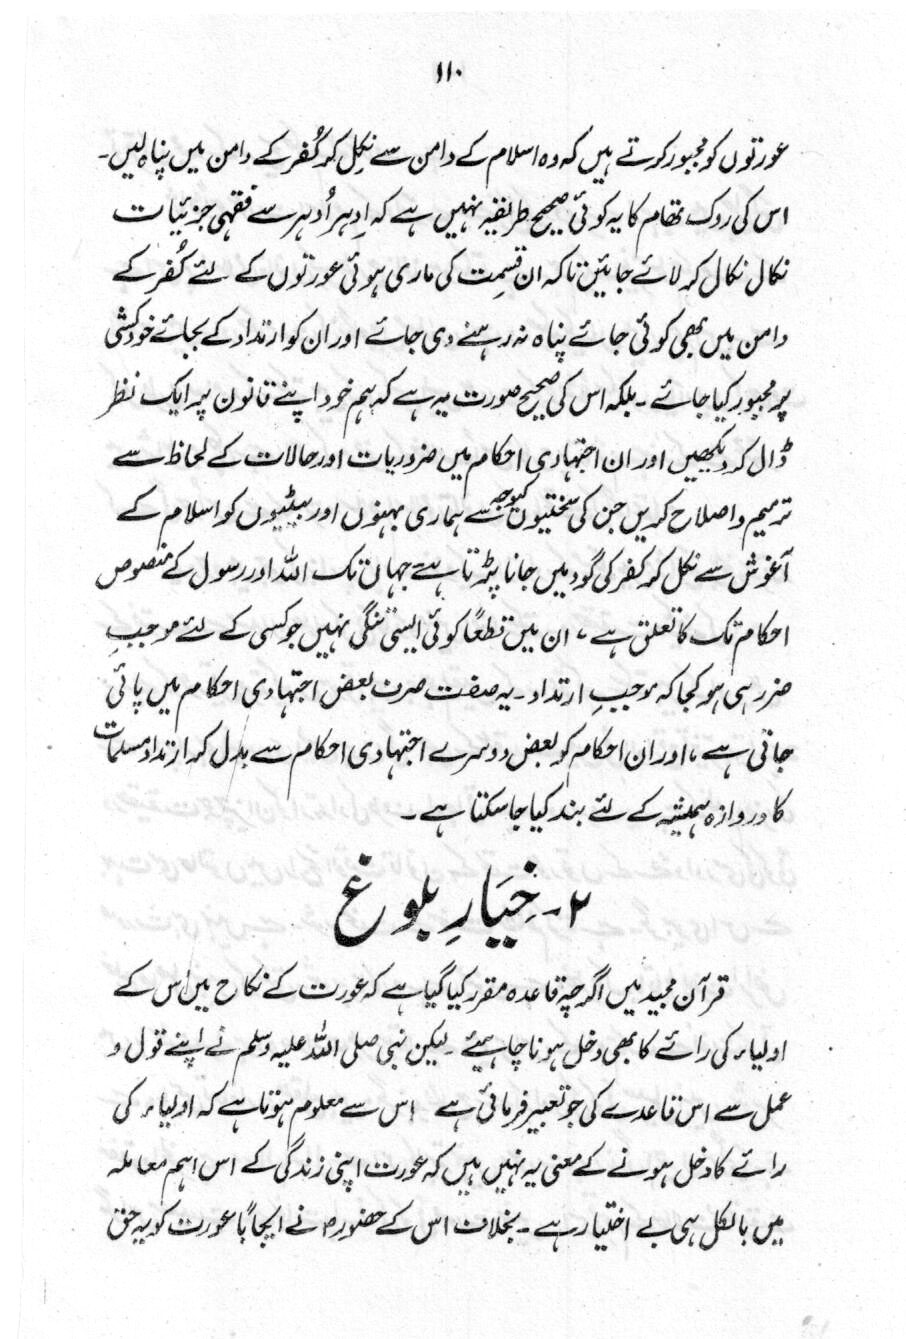 ۱۱۰
عورتوں کو مجبور کرتے ہیں کہ وہ اسلام کے دامن سے نِکل کر کُفر کے دامن میں پناہ لیں۔
اس کی روک تھام کا یہ کوئی صحیح طریقہ نہیں ہے کہ اِدہر اُدہر سے فقہی جزئیات
نکال نکال کر لائے جائیں تاکہ ان قسِمت کی ماری ہوئی عورتوں کے لئے کُفر کے
دامن میں بھی کوئی جائے پناہ نہ رہنے دی جائے اور ان کو ارتداد کے بجائے خودکشی
پر مجبور کیا جائے۔ بلکہ اس کی صحیح صورت یہ ہے کہ ہم خود اپنے قانون پر ایک نظر
ڈال کر دیکھیں اور ان اجتہادی احکام میں ضروریات اور حالات کے لحاظ سے
ترمیم و اصلاح کریں جن کی سختیوں کیوجہ سے ہماری بہنوں اور بیٹیوں کو اسلام کے
آغوش سے نکل کر کفر کی گود میں جانا پڑتا ہے جہاں تک اللہ اور رسول کے منصوص
احکام تک کا تعلق ہے، ان میں قطعاً کوئی ایسی تنگی نہیں جو کسی کے لئے موجبِ
ضرر ہی ہو کجا کہ موجبِ ارتداد۔ یہ صفت صرف بعض اجتہادی احکام میں پائی
جاتی ہے، اور ان احکام کو بعض دوسرے اجتہادی احکام سے بدل کر ارتداد مسلمات
کا دروازہ ہمیشہ کے لئے بند کیا جا سکتا ہے۔
۲۔ خِیَارِ بلوغ
قرآن مجید میں اگرچہ قاعدہ مقرر کیا گیا ہے کہ عورت کے نکاح میں اُس کے
اولیاء کی رائے کا بھی دخل ہونا چاہیئے۔ لیکن نبی صلی اللہ علیہ وسلم نے اپنے قول و
عمل سے اس قاعدے کی جو تعبیر فرمائی ہے اس سے معلوم ہوتا ہے کہ اولیاء کی
رائے کا دخل ہونے کے معنی یہ نہیں ہیں کہ عورت اپنی زندگی کے اس اہم معاملہ
میں بالکل ہی بے اختیار ہے۔ بخلاف اس کے حضورؐ نے ایجاباً عورت کو یہ حق